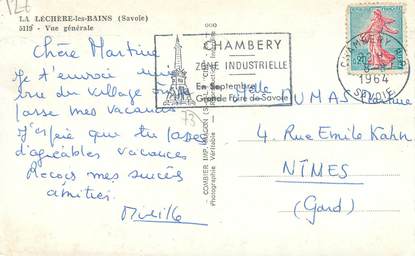 LA LÉCHÈRE-les-BAINS (Savoie)
5115 - Vue générale
Chère Martine
Je t'envoie une
vue du village où je
passe mes vacances
J'espère que tu passes
d'agréables vacances
Reçois mes
amitiés.
Mireille
CHAMBERY
ZONE INDUSTRIELLE
En Septembre
Grande Foire de Savoie
CHAMBERY R.P.
1964
SAVOIE
0,20
COMBIER IMP. MACON
Photographie Véritable
73
Melle DUMAS Martine
4 Rue Emile Kahn
NÎMES
(Gard)